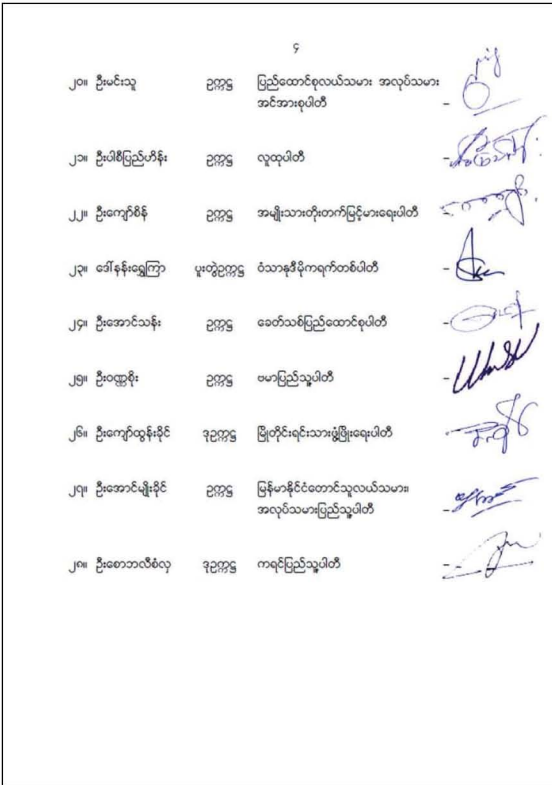 ၄
၂၀။ ဦးမင်းသူ ဥက္ကဋ္ဌ ပြည်ထောင်စုလယ်သမား အလုပ်သမား
အင်အားစုပါတီ -
၂၁။ ဦးပါစီပြည်ဟိန်း ဥက္ကဋ္ဌ လူထုပါတီ -
၂၂။ ဦးကျော်စိန် ဥက္ကဋ္ဌ အမျိုးသားတိုးတက်မြင့်မားရေးပါတီ -
၂၃။ ဒေါ်နန်းရွှေကြာ ပူးတွဲဥက္ကဋ္ဌ ဝံသာနုဒီမိုကရက်တစ်ပါတီ -
၂၄။ ဦးအောင်သန်း ဥက္ကဋ္ဌ ခေတ်သစ်ပြည်ထောင်စုပါတီ -
၂၅။ ဦးဝဏ္ဏစိုး ဥက္ကဋ္ဌ ဗမာပြည်သူ့ပါတီ -
၂၆။ ဦးကျော်ထွန်းခိုင် ဒုဥက္ကဋ္ဌ မြိုတိုင်းရင်းသားဖွံ့ဖြိုးရေးပါတီ -
၂၇။ ဦးအောင်မျိုးခိုင် ဥက္ကဋ္ဌ မြန်မာနိုင်ငံတောင်သူလယ်သမား၊
အလုပ်သမားပြည်သူ့ပါတီ -
၂၈။ ဦးစောဘလီစံလှ ဒုဥက္ကဋ္ဌ ကရင်ပြည်သူ့ပါတီ -